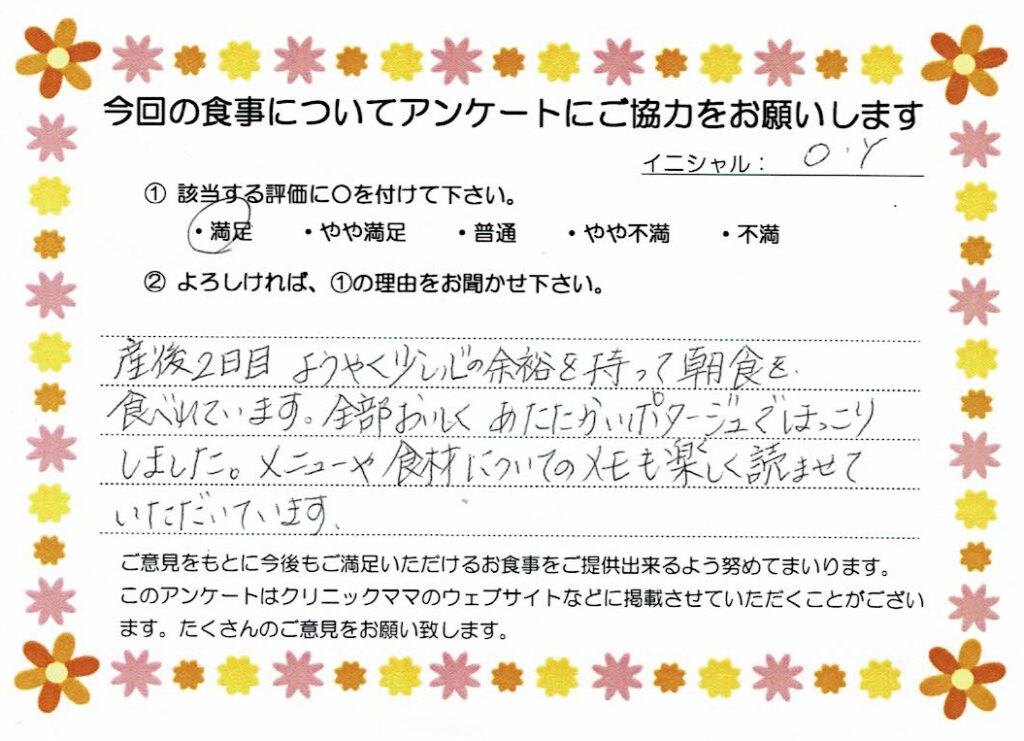 今回の食事についてアンケートにご協力をお願いします
イニシャル： O.Y
① 該当する評価に〇を付けて下さい。
・満足 ・やや満足 ・普通 ・やや不満 ・不満
② よろしければ、①の理由をお聞かせ下さい。
産後2日目 ようやく少し心の余裕を持って朝食を
食べれています。全部おいしく あたたかいポタージュでほっこり
しました。メニューや食材についてのメモも楽しく読ませて
いただいています。
ご意見をもとに今後もご満足いただけるお食事をご提供出来るよう努めてまいります。
このアンケートはクリニックママのウェブサイトなどに掲載させていただくことがござい
ます。たくさんのご意見をお願い致します。